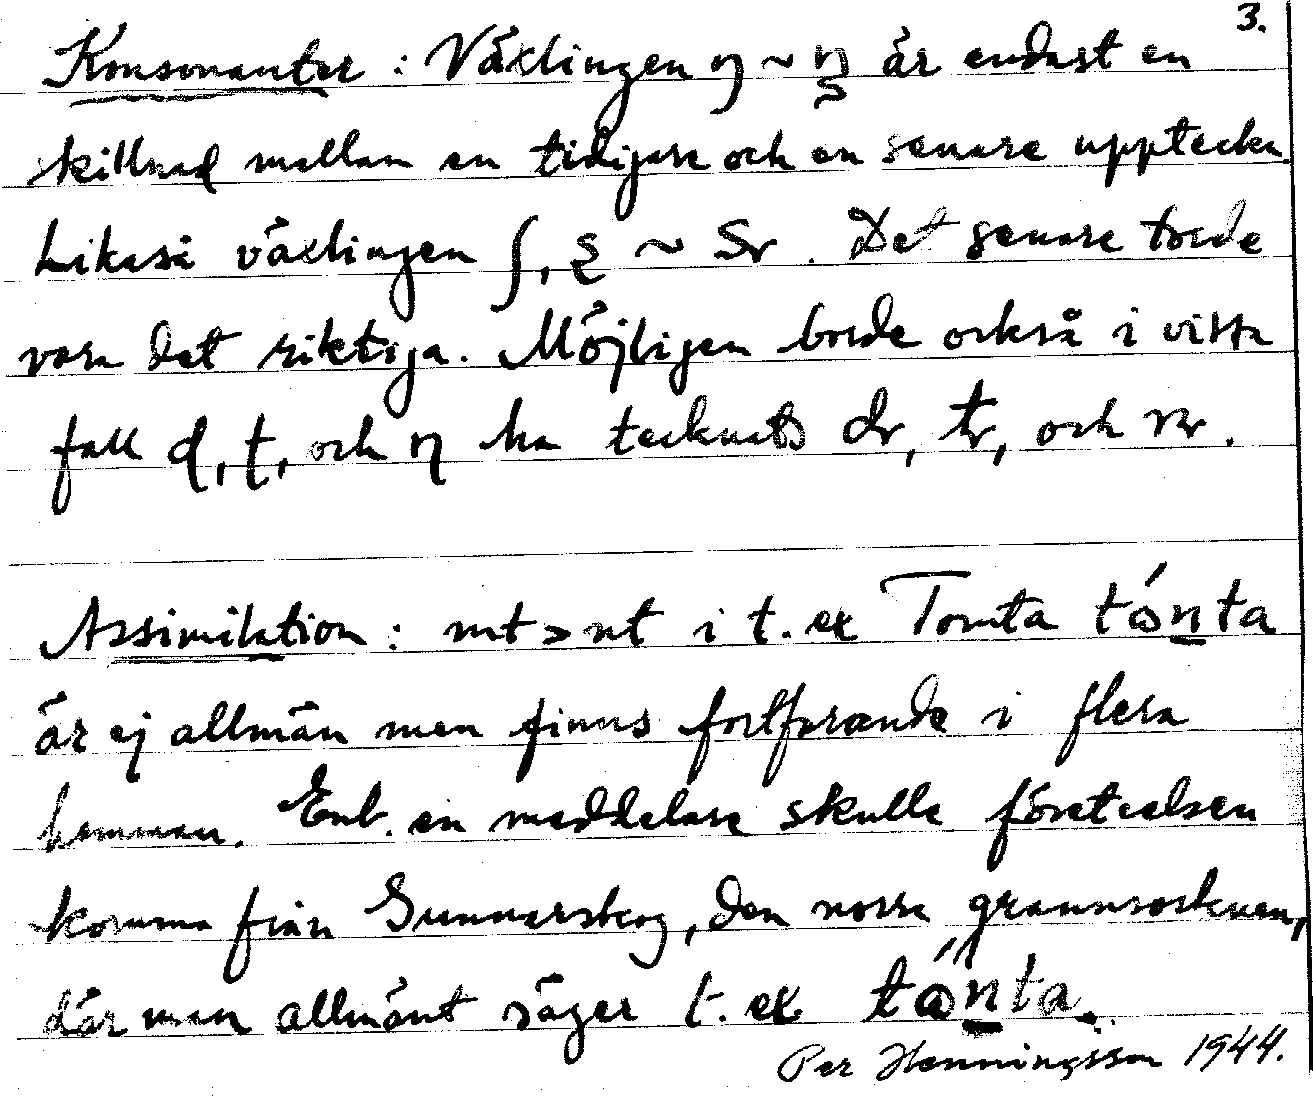 3.
Konsonanter: Växlingen ŋ ~ ŋ är endast en
skillnad mellan en tidigare och en senare uppteckn.
Likaså växlingen ʃ, ʂ ~ Sr. Det senare torde
vara det riktiga. Möjligen borde också i vissa
fall ɖ, ʈ, och ɳ ha tecknats dr, tr, och nr.
Assimilation: mt > nt i t. ex Tomta
är ej allmän men finns fortfarande i flera
hemman. Enl. en meddelare skulle företeelsen
komma från Gunnarskog, den norra grannsocknen,
där man allmänt säger t. ex
Per Henningsson 1944.